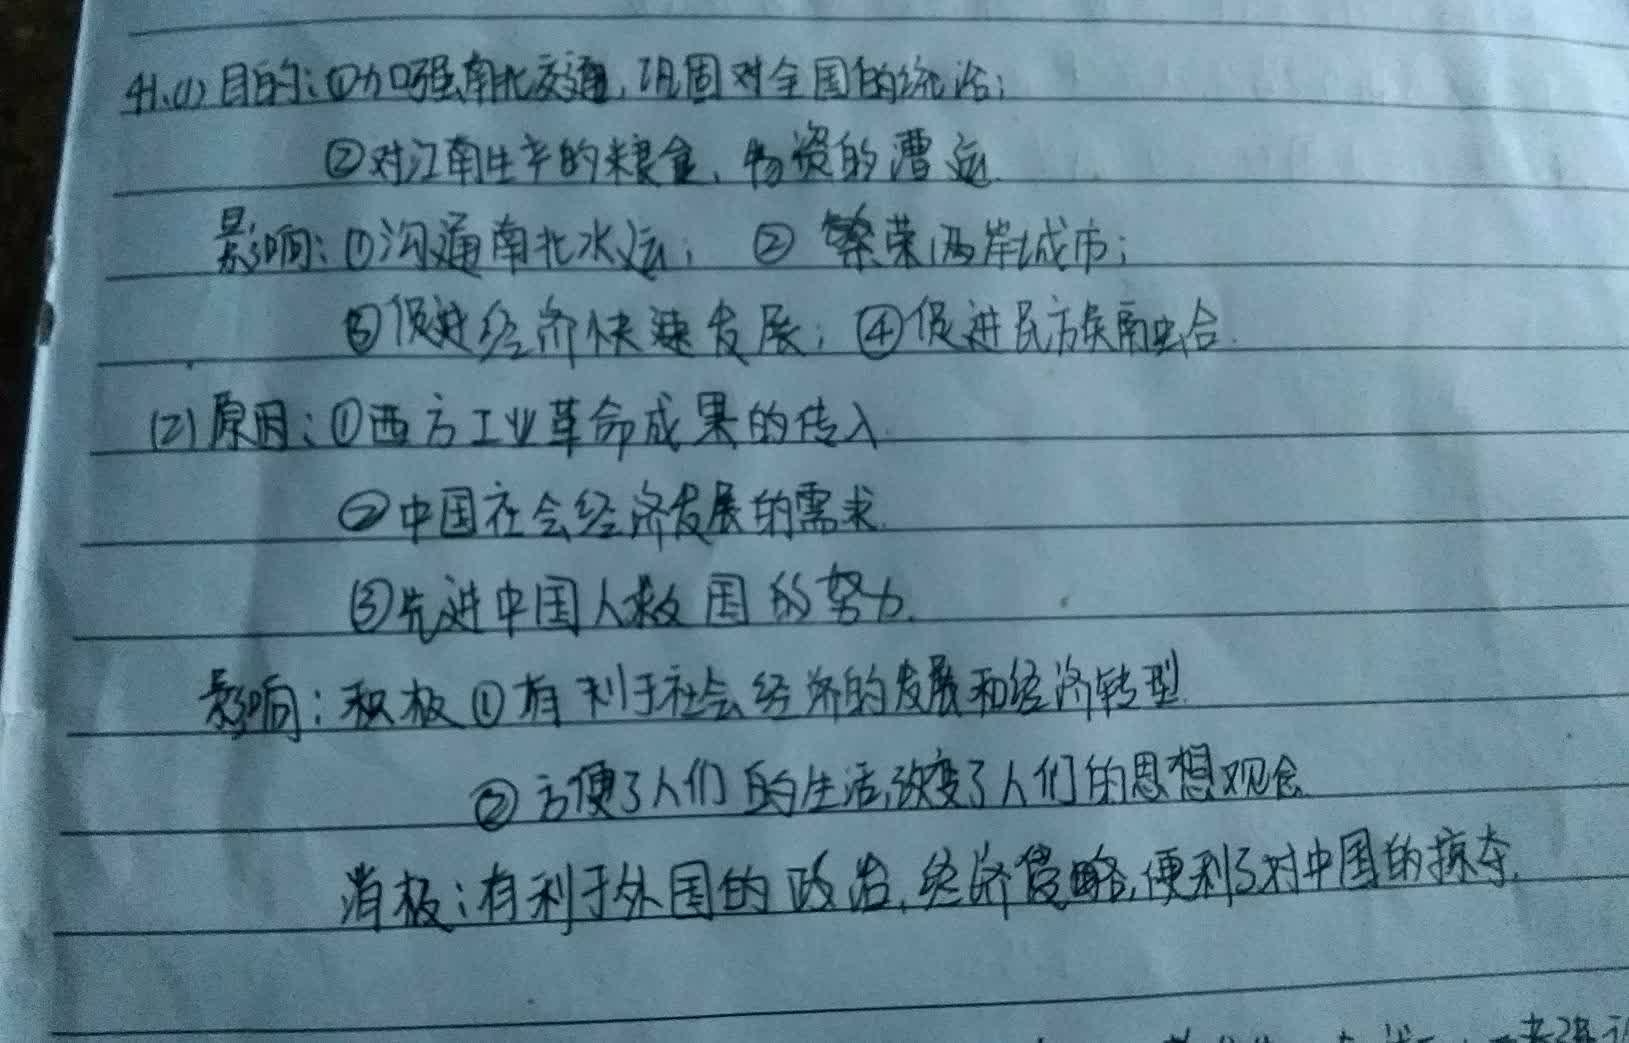 41.(1)目的:①加强南北交通,巩固对全国的统治;
②对江南生产的粮食、物资的漕运.
影响:①沟通南北水运; ②繁荣两岸城市;
③促进经济快速发展; ④促进民族融合.
(2)原因:①西方工业革命成果的传入
②中国社会经济发展的需求.
③先进中国人救国的努力.
影响:积极①有利于社会经济的发展和经济转型.
②方便了人们的生活,改变了人们的思想观念.
消极:有利于外国的政治、经济侵略,便利了对中国的掠夺.